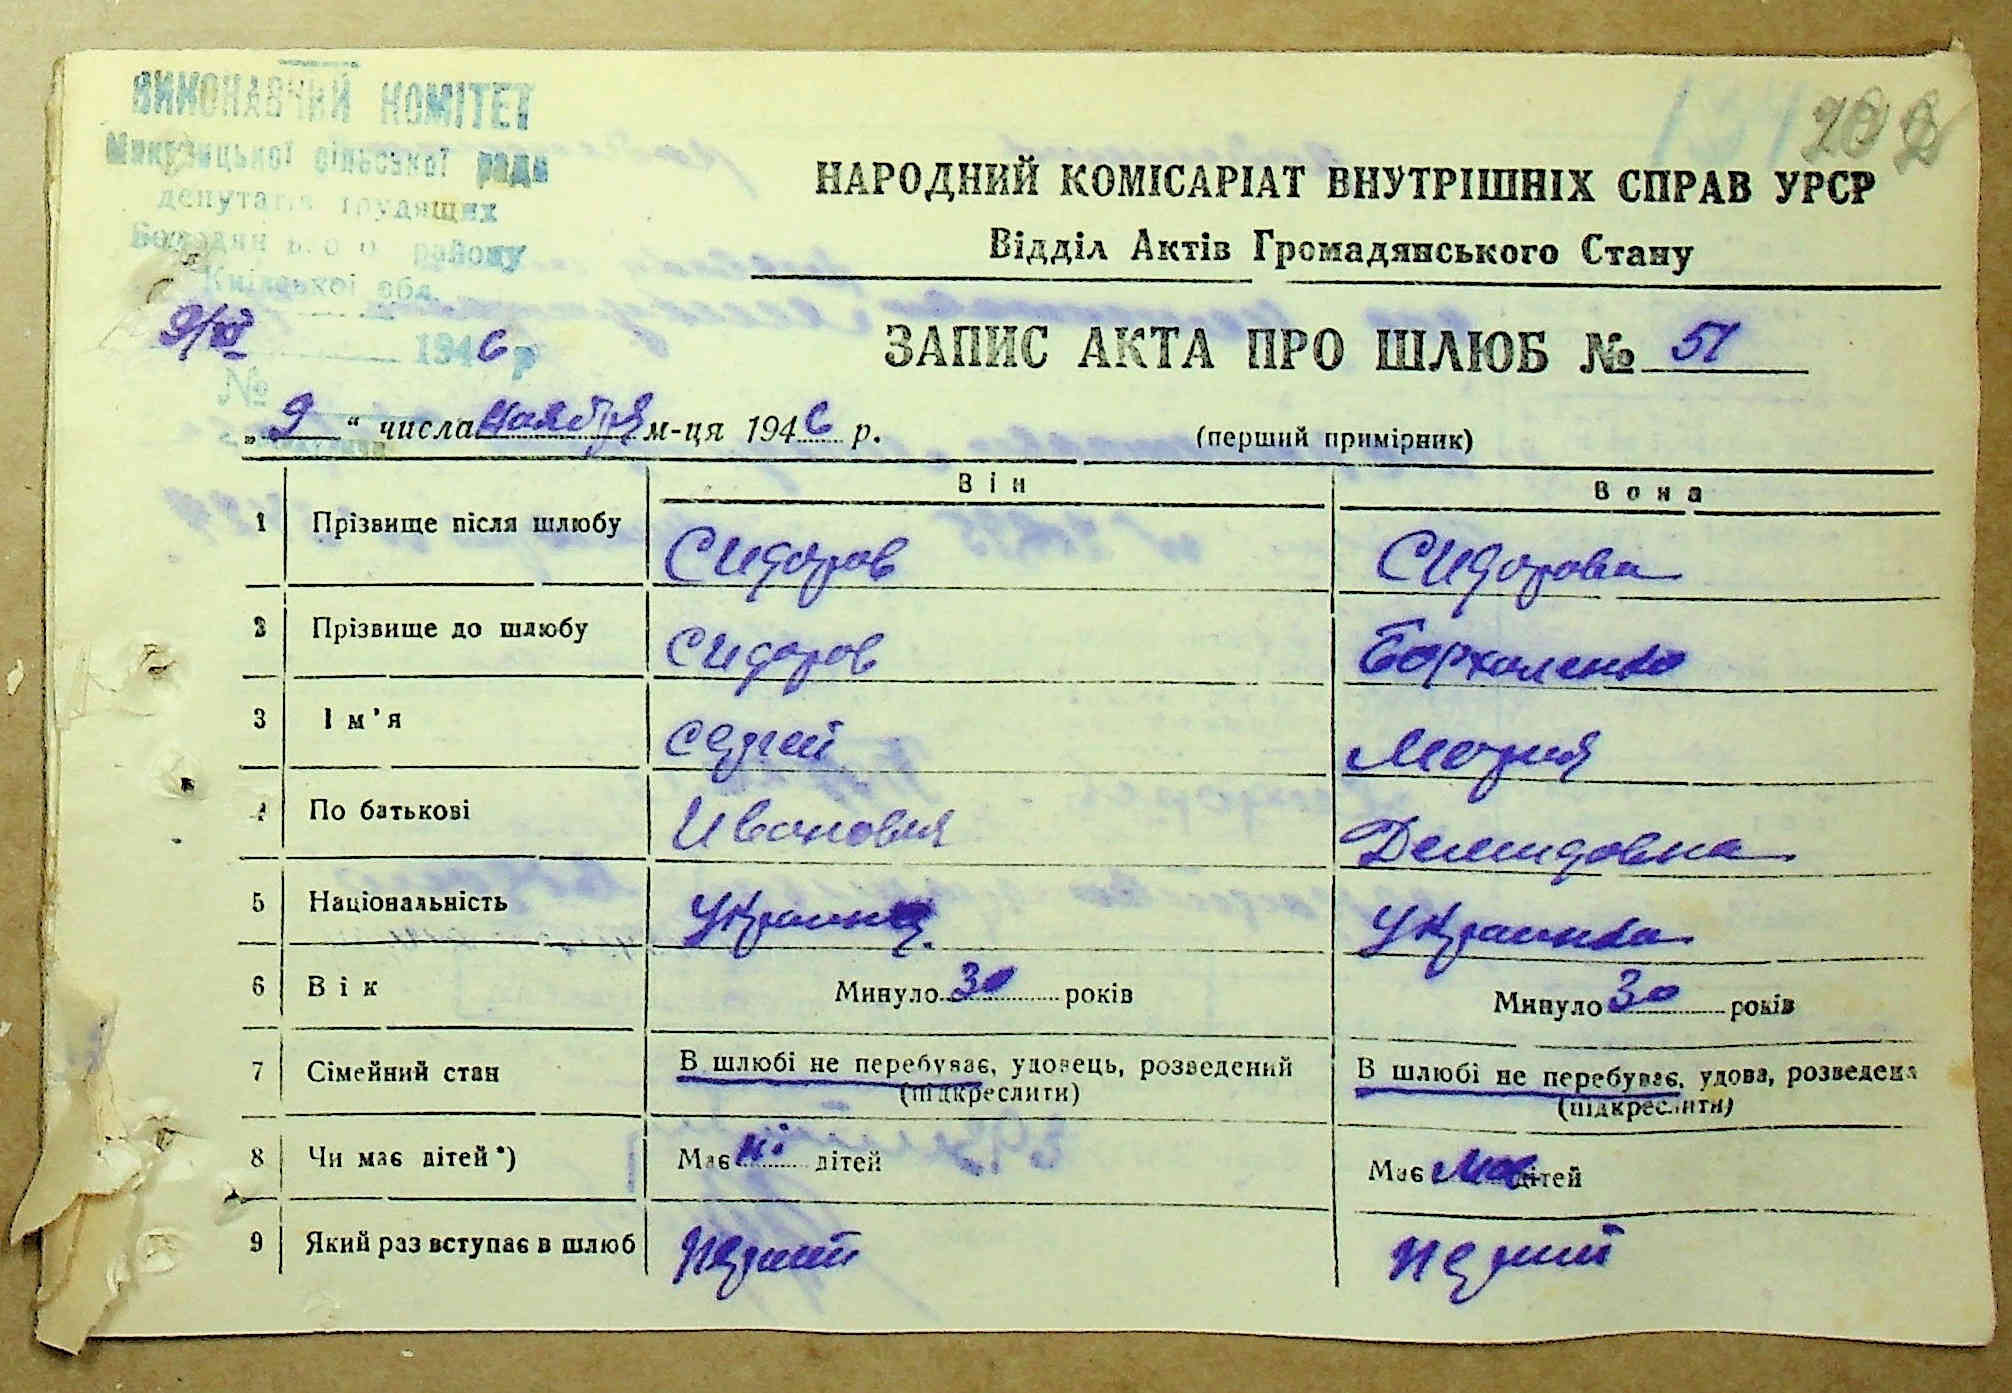 ВИКОНАВЧИЙ КОМІТЕТ
сільської ради
депутатів трудящих
району
Київської обл.
9/XI 1946 р
№
202
НАРОДНИЙ КОМІСАРІАТ ВНУТРІШНІХ СПРАВ УРСР
Відділ Актів Громадянського Стану
ЗАПИС АКТА ПРО ШЛЮБ № 51
„ 9 “ числа Ноября м-ця 1946 р. (перший примірник)
Він Вона
1 Прізвище після шлюбу Сидоров Сидорова
2 Прізвище до шлюбу Сидоров Борхаленко
3 Ім’я Сергий Мария
4 По батькові Ивановия Демидовна
5 Національність Украинец Украинка
6 Вік Минуло 30 років Минуло 30 років
7 Сімейний стан В шлюбі не перебуває, удовець, розведений В шлюбі не перебуває, удова, розведена
(підкреслити) (підкреслити)
8 Чи має дітей*) Має ні дітей Має дітей
9 Який раз вступає в шлюб Перший Перший